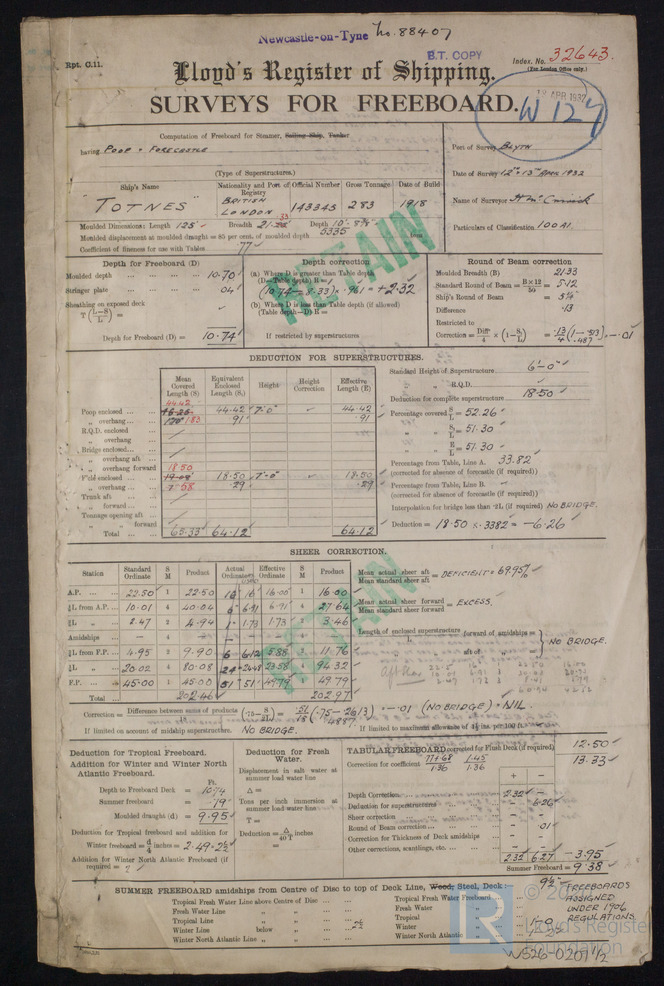 Newcastle-on-Tyne No. 88407
B.T. COPY
Rpt. C.11.
Index. No. 32643.
(For London Office only.)
Lloyd's Register of Shipping.
SURVEYS FOR FREEBOARD.
APR 1932
W 127
Computation of Freeboard for Steamer, Sailing Ship, Tanker
having POOP & FORECASTLE
(Type of Superstructures.)
Port of Survey BLYTH
Date of Survey 12th & 13th APRIL 1932
Name of Surveyor
Particulars of Classification 100A1.
Ship's Name
Nationality and Port of Registry
Official Number
Gross Tonnage
Date of Build
"TOTNES"
BRITISH
LONDON
143345
283
1918
Moulded Dimensions: Length 125' Breadth 21. Depth 10'-8⅜"
Moulded displacement at moulded draught = 85 per cent. of moulded depth 533.5 tons
Coefficient of fineness for use with Tables .77
RETAIN
Depth for Freeboard (D)
Moulded depth ... 10.70
Stringer plate ... .04
Sheathing on exposed deck
T (L-S/L) =
Depth for Freeboard (D) = 10.74
Depth correction
(a) Where D is greater than Table depth
(D-Table depth) R =
(10.74 - 8.33) × .961 = + 2.32
(b) Where D is less than Table depth (if allowed)
(Table depth-D) R =
If restricted by superstructures
Round of Beam correction
Moulded Breadth (B) 21.33
Standard Round of Beam = B×12/50 = 5.12
Ship's Round of Beam =
Difference .13
Restricted to
Correction = Diff/4 × (1 - S/L) = .13/4 (1 - .513) = -.01
.487
DEDUCTION FOR SUPERSTRUCTURES.
Mean Covered Length (S)
Equivalent Enclosed Length (S₁)
Height
Height Correction
Effective Length (E)
44.42
Poop enclosed ... 44.42 7'-0" 44.42
„ overhang ... 1.83 .91 .91
R.Q.D. enclosed
„ overhang
Bridge enclosed...
„ overhang aft
„ overhang forward
18.50
F'cle enclosed ... 18.50 7'-0" 18.50
„ overhang ... .58 .29 .29
Trunk aft ...
„ forward ...
Tonnage opening aft ...
„ „ forward
Total ... 65.33 64.12 64.12
Standard Height of Superstructure 6'-0"
„ „ R.Q.D.
Deduction for complete superstructure 18.50
Percentage covered S/L = 52.26
„ „ S₁/L = 51.30
„ „ E/L = 51.30
Percentage from Table, Line A. 33.82
(corrected for absence of forecastle (if required))
Percentage from Table, Line B.
(corrected for absence of forecastle (if required))
Interpolation for bridge less than ·2L (if required) NO BRIDGE.
Deduction = 18.50 × .3382 = -6.26
SHEER CORRECTION.
Station
Standard Ordinate
S M
Product
Actual Ordinate
Effective Ordinate
S M
Product
A.P. ... 22.50 1 22.50 16 16" 16.00 1 16.00
⅙L from A.P. ... 10.01 4 40.04 6 6.91 6.91 4 27.64
⅓L „ 2.47 2 4.94 1 1.73 1.73 2 3.46
Amidships ... - 4 - - - 4 -
⅓L from F.P. ... 4.95 2 9.90 6 6.12 5.88 2 11.76
⅙L „ 20.02 4 80.08 24 24.48 23.58 4 94.32
F.P. ... 45.00 1 45.00 51 51" 49.79 1 49.79
Total ... 202.46 202.97
Mean actual sheer aft
Mean standard sheer aft = DEFICIENT = 69.95%
Mean actual sheer forward
Mean standard sheer forward = EXCESS.
Length of enclosed superstructure forward of amidships =
„ „ aft of „ =
NO BRIDGE.
Correction = Difference between sums of products/18 (·75 - S/2L) = .51/18 (.75 - .2613) = -.01 (NO BRIDGE) = NIL.
.4887
If limited on account of midship superstructure. NO BRIDGE.
If limited to maximum allowance of 1½ ins. per 100 ft.
Deduction for Tropical Freeboard.
Addition for Winter and Winter North Atlantic Freeboard.
Ft.
Depth to Freeboard Deck = 10.74
Summer freeboard = .79
Moulded draught (d) = 9.95
Deduction for Tropical freeboard and addition for
Winter freeboard = d/4 inches = 2.49 = 2½
Addition for Winter North Atlantic Freeboard (if required) =
Deduction for Fresh Water.
Displacement in salt water at summer load water line
Δ =
Tons per inch immersion at summer load water line
T =
Deduction = Δ/40T inches
=
TABULAR FREEBOARD corrected for Flush Deck (if required) 12.50
Correction for coefficient .77+.68/1.36 1.45/1.36 13.33
+ -
Depth Correction ... 2.32 -
Deduction for superstructures ... - 6.26
Sheer correction ... - -
Round of Beam correction ... - .01
Correction for Thickness of Deck amidships - -
Other corrections, scantlings, etc. ... - -
2.32 6.27 -3.95
Summer Freeboard = 9.38
SUMMER FREEBOARD amidships from Centre of Disc to top of Deck Line, Wood, Steel, Deck :- 9½"
FREEBOARDS
ASSIGNED
UNDER 1906
REGULATIONS.
Tropical Fresh Water Line above Centre of Disc ...
Fresh Water Line „ „
Tropical Line „ „
Winter Line below „ 2½
Winter North Atlantic Line „ „
Tropical Fresh Water Freeboard
Fresh Water „
Tropical „
Winter „ 1-0
Winter North Atlantic „
LR
Lloyd's Register
Foundation
W526-0201 1/2